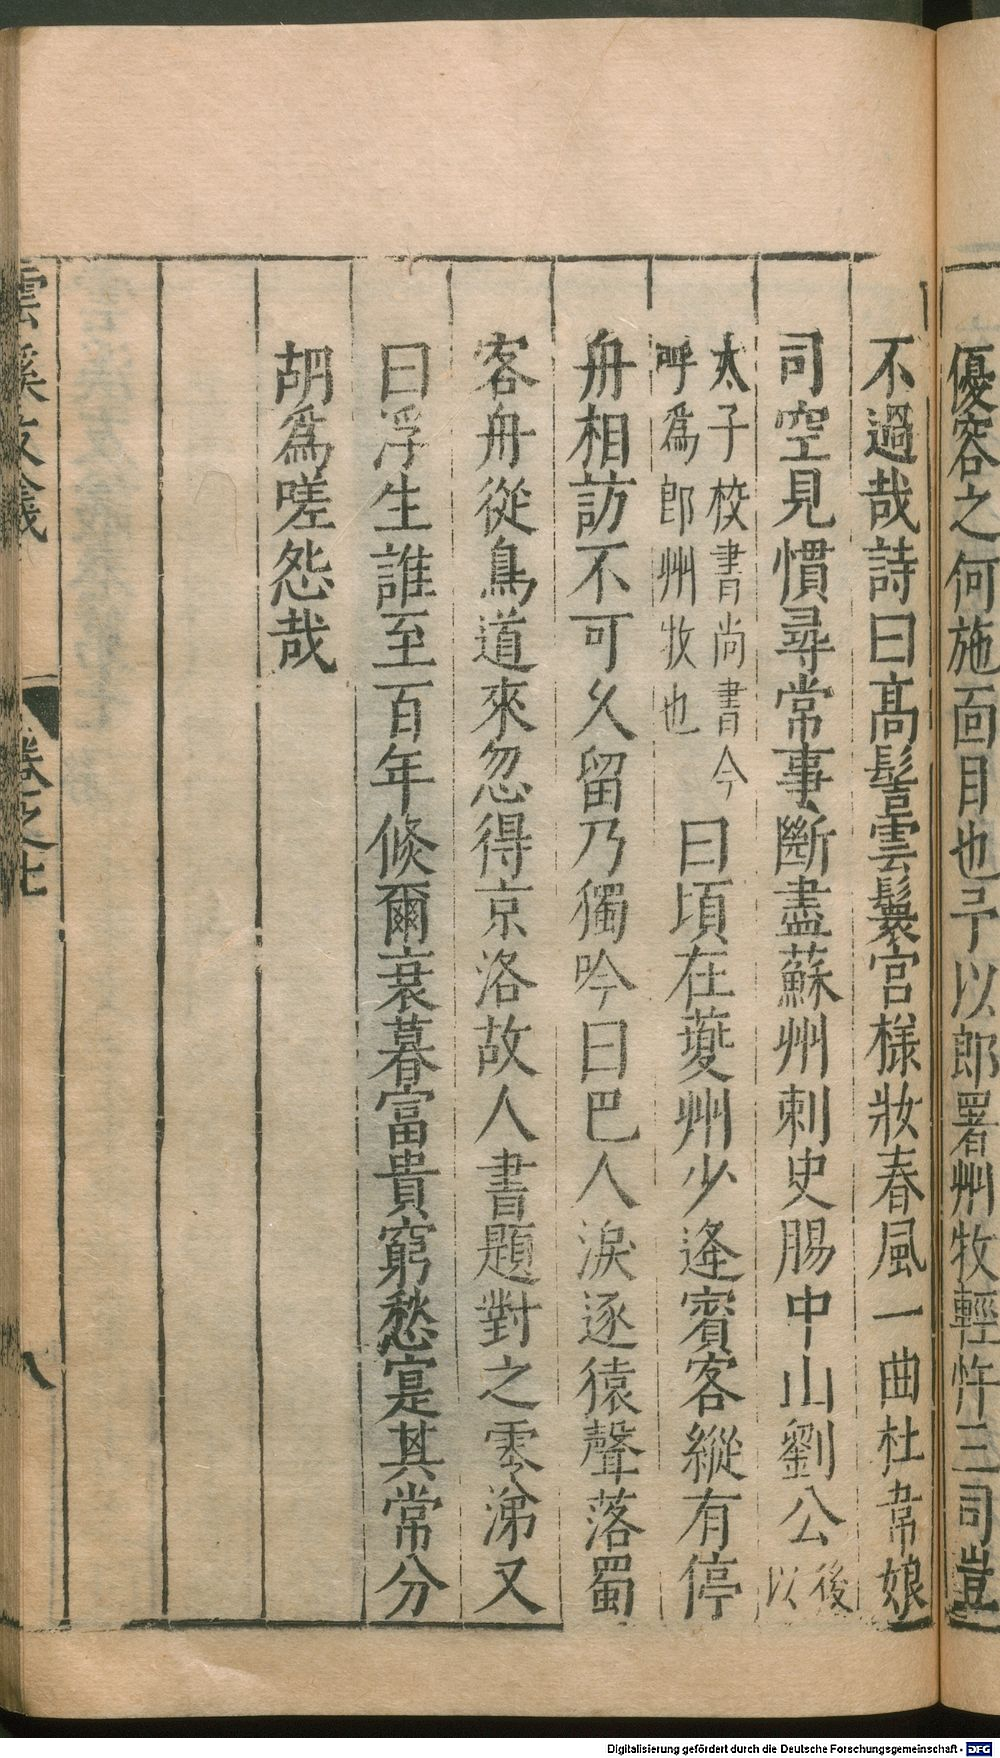 優容之何施面目也予以郎署州牧輕忤三司豈
不過哉詩曰高髻雲鬟宮樣妝春風一曲杜韋娘
司空見慣尋常事斷盡蘇州刺史腸中山劉公後以
太子校書尚書今
呼爲郎州牧也
曰頃在夔州少逢賓客縱有停
舟相訪不可久留乃獨吟曰巴人淚逐猿聲落蜀
客舟從鳥道來忽得京洛故人書題對之零涕又
曰浮生誰至百年倏爾衰暮富貴窮愁寔其常分
胡爲嗟怨哉
雲溪友議
卷之七
八
Digitalisierung gefördert durch die Deutsche Forschungsgemeinschaft - DFG